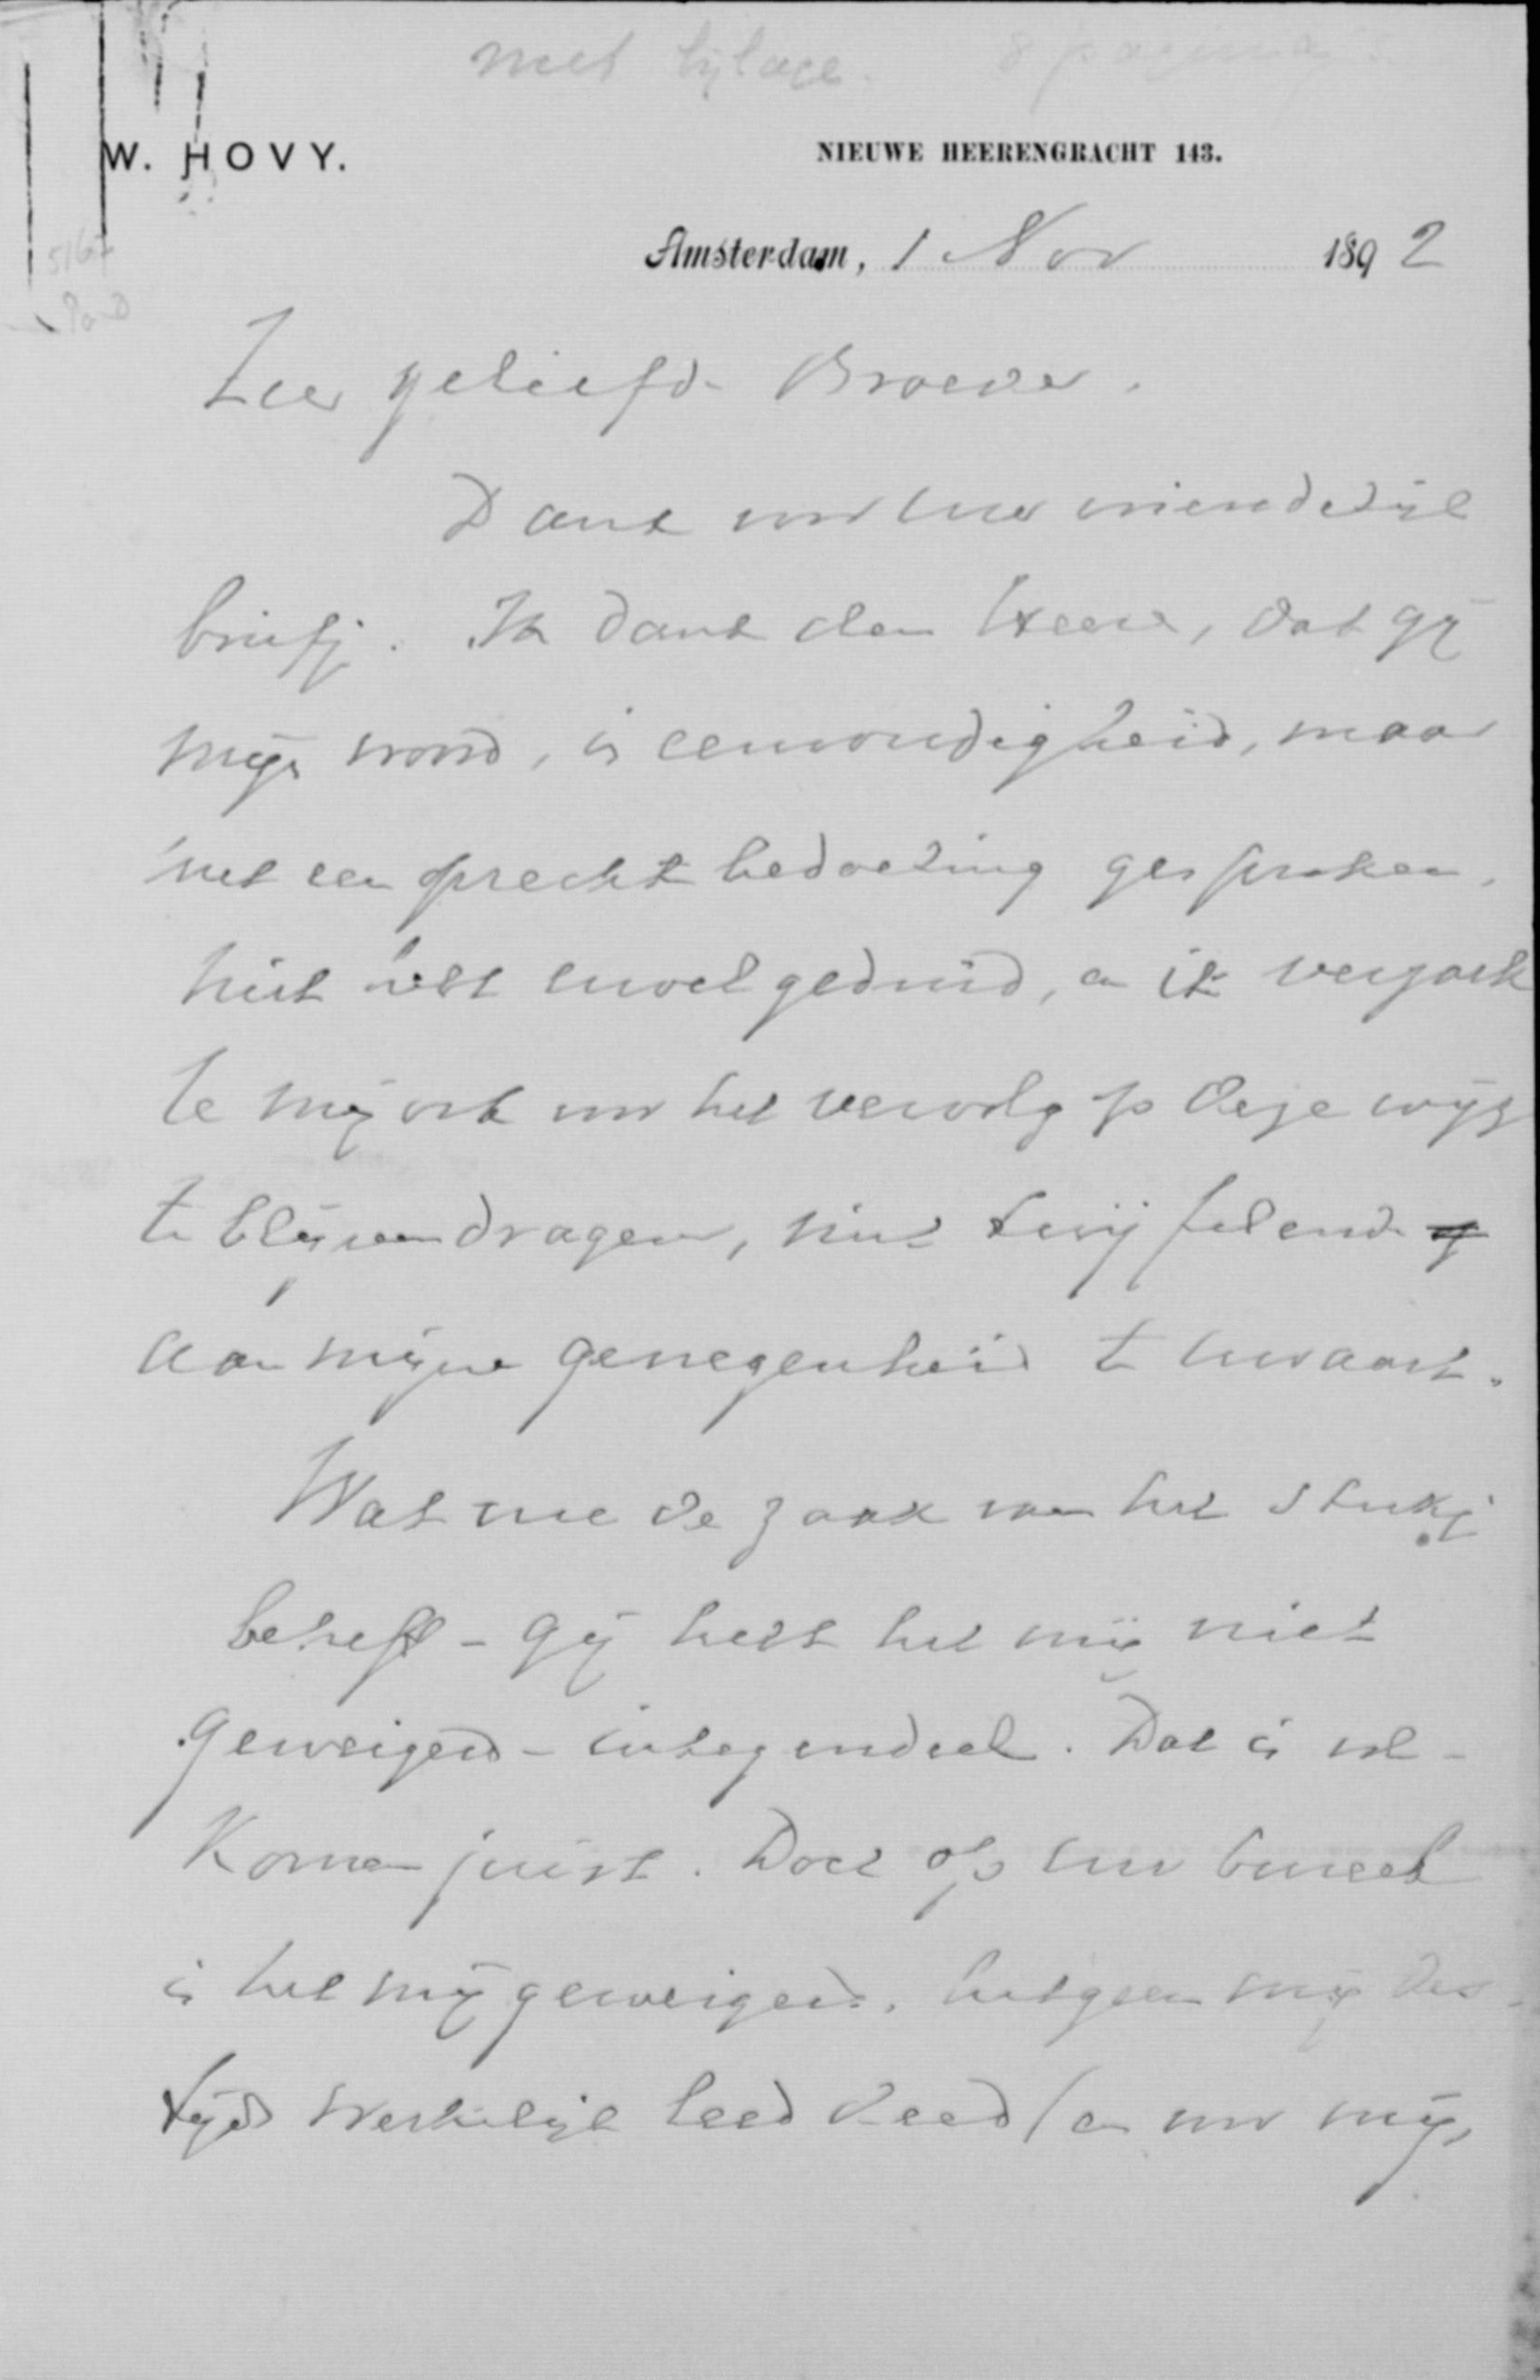 met bijlage. 8 pagina's
W. HOVY.
NIEUWE HEERENGRACHT 143.
Amsterdam, 1 Nov 1892
Zeer geliefde Broeder.
Dank voor uw vriendelijk
briefje. Ik dank den Heere, dat gij
mijn woord, in eenvoudigheid, maar
met een oprechte bedoeling gesproken,
niet hebt euvel geduid, en ik verzoek
te mij ook voor het vervolg op deze wijze
te blijven dragen, niet twijfelende
aan mijne genegenheid te uwaart.
Wat nu de zaak van het stukje
betreft - gij hebt het mij niet
geweigerd - integendeel. Dat is vol-
komen juist. Doch op uw bureel
is het mij geweigerd, hetgeen mij des-
tijds werkelijk leed deed (en voor mij,